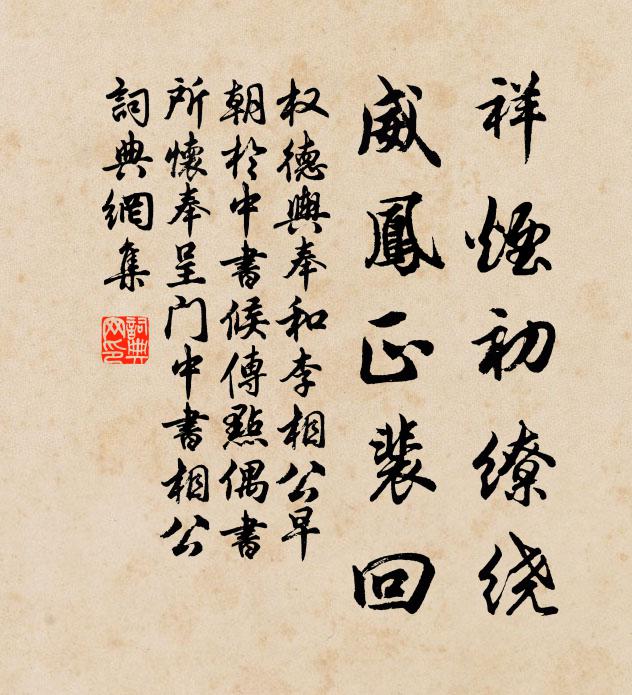 祥煙初繚绕
威鳳正裴回
权德輿奉和李相公早
朝於中書候傳點偶書
所懷奉呈门中書相公
詞典網集
詞典网印